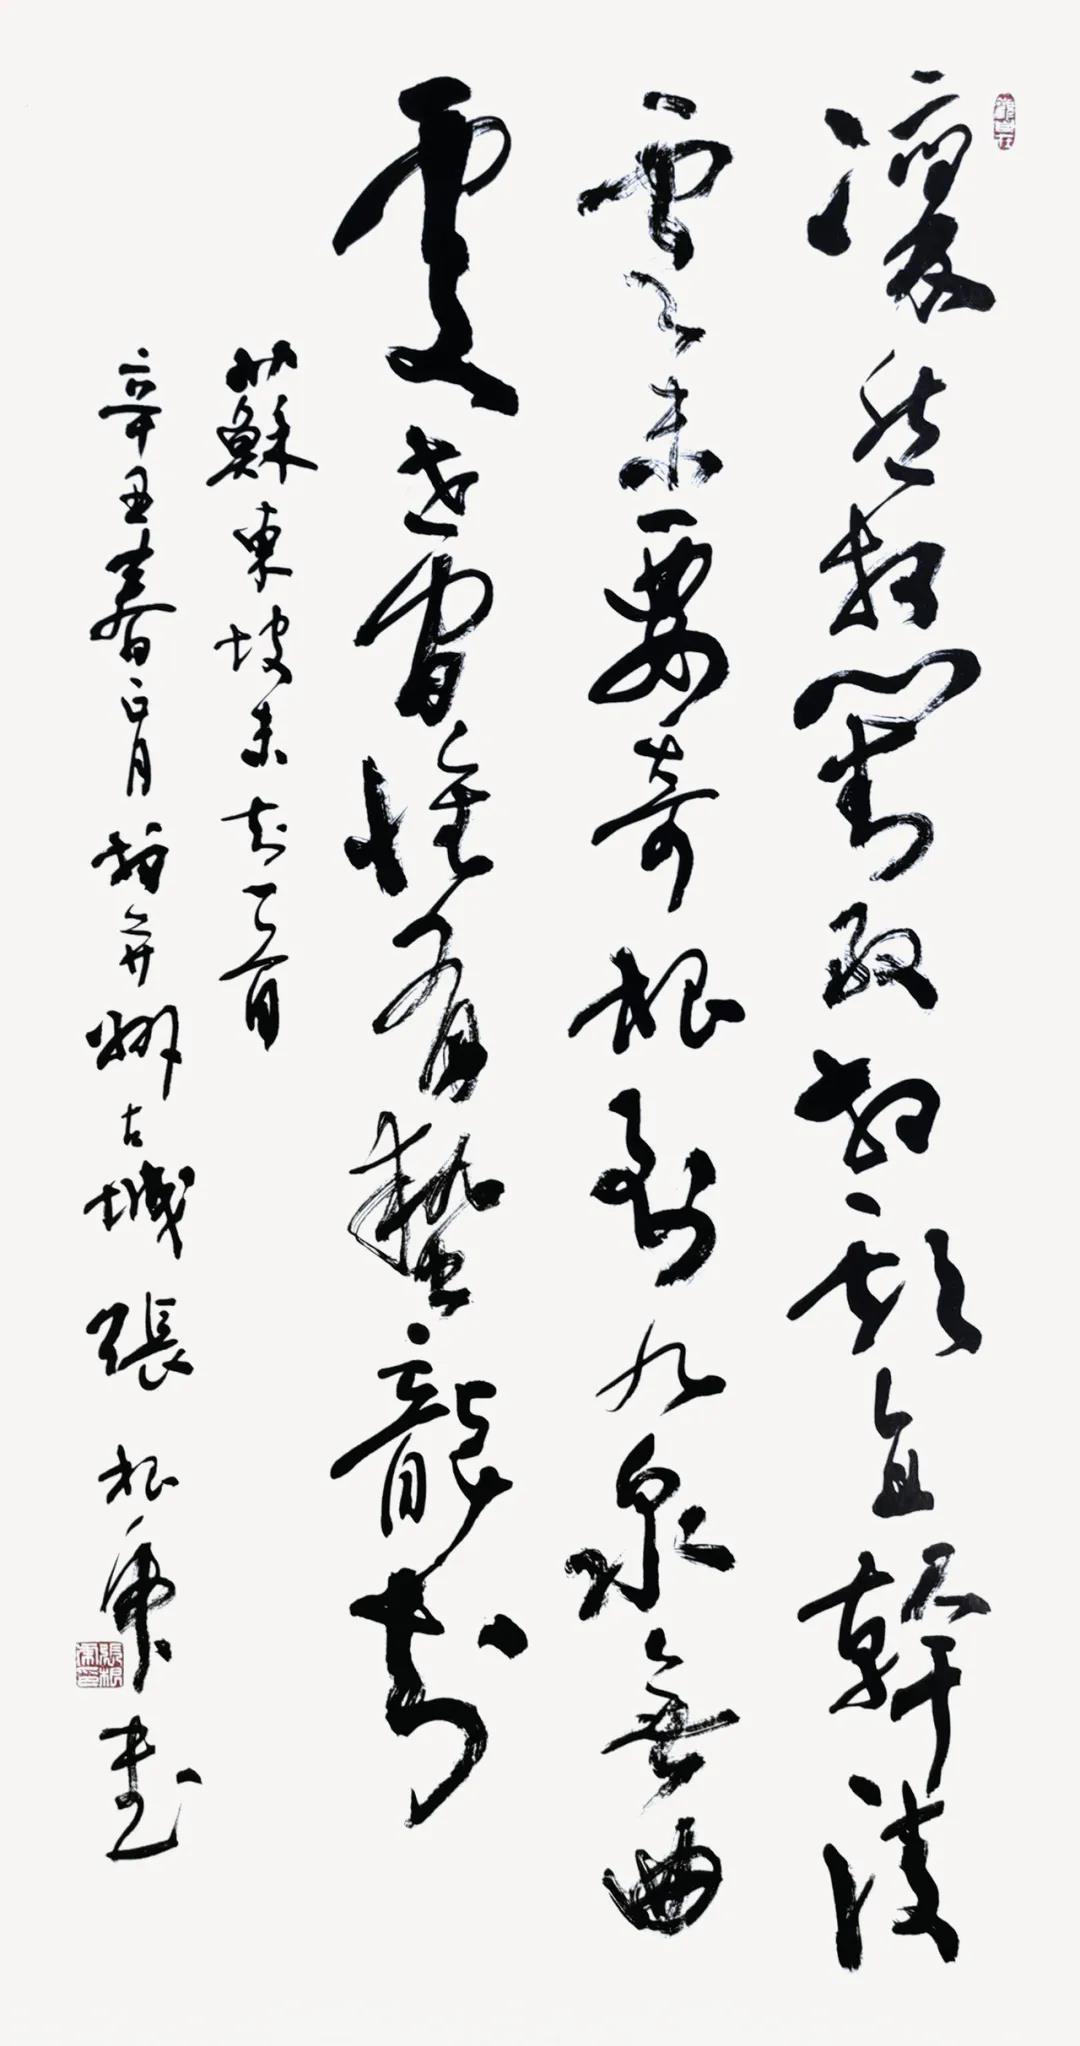 凜然相對敢相欺直幹凌
雲未要奇根到九泉無曲
處世間惟有蟄龍知
蘇東坡一首
辛丑春正月於并州古城張根虎書
張根虎印